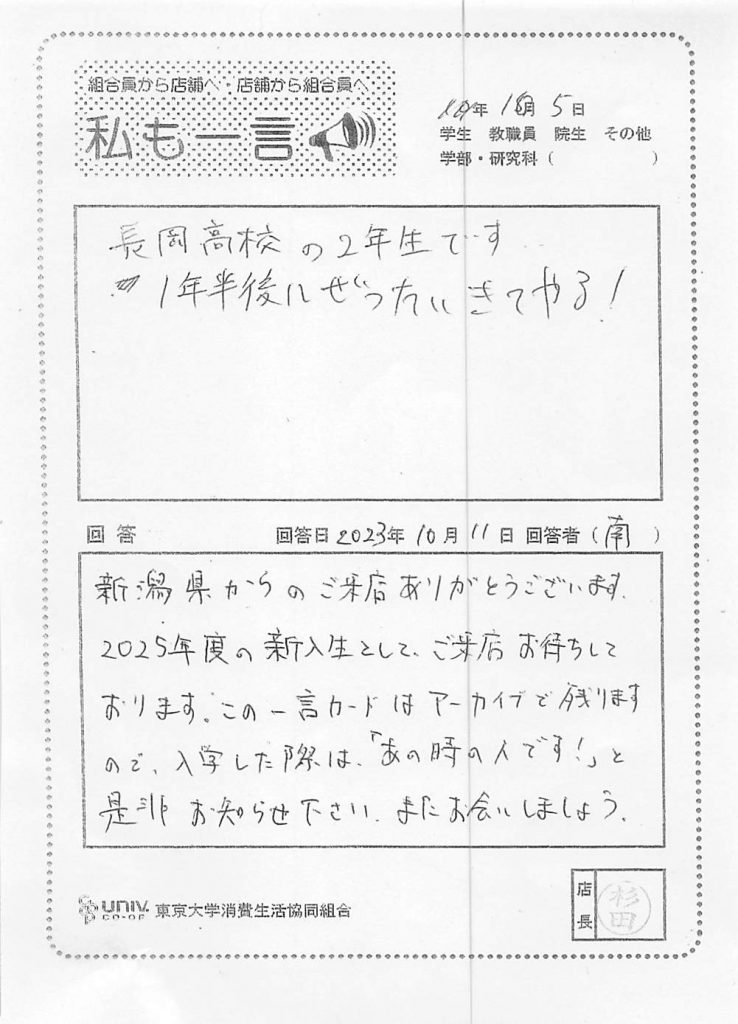 組合員から店舗へ・店舗から組合員へ
私も一言
年 月 5日
学生 教職員 院生 その他
学部・研究科( )
長岡高校の2年生です
1年半後にぜったいきてやる!
回答 回答日2023年10月11日 回答者(南)
新潟県からのご来店ありがとうございます。
2025年度の新入生として、ご来店お待ちして
おります。この一言カードはアーカイブで残ります
ので、入学した際は、「あの時の人です!」と
是非お知らせ下さい。またお会いしましょう。
UNIV. CO-OP 東京大学消費生活協同組合
店長 杉田